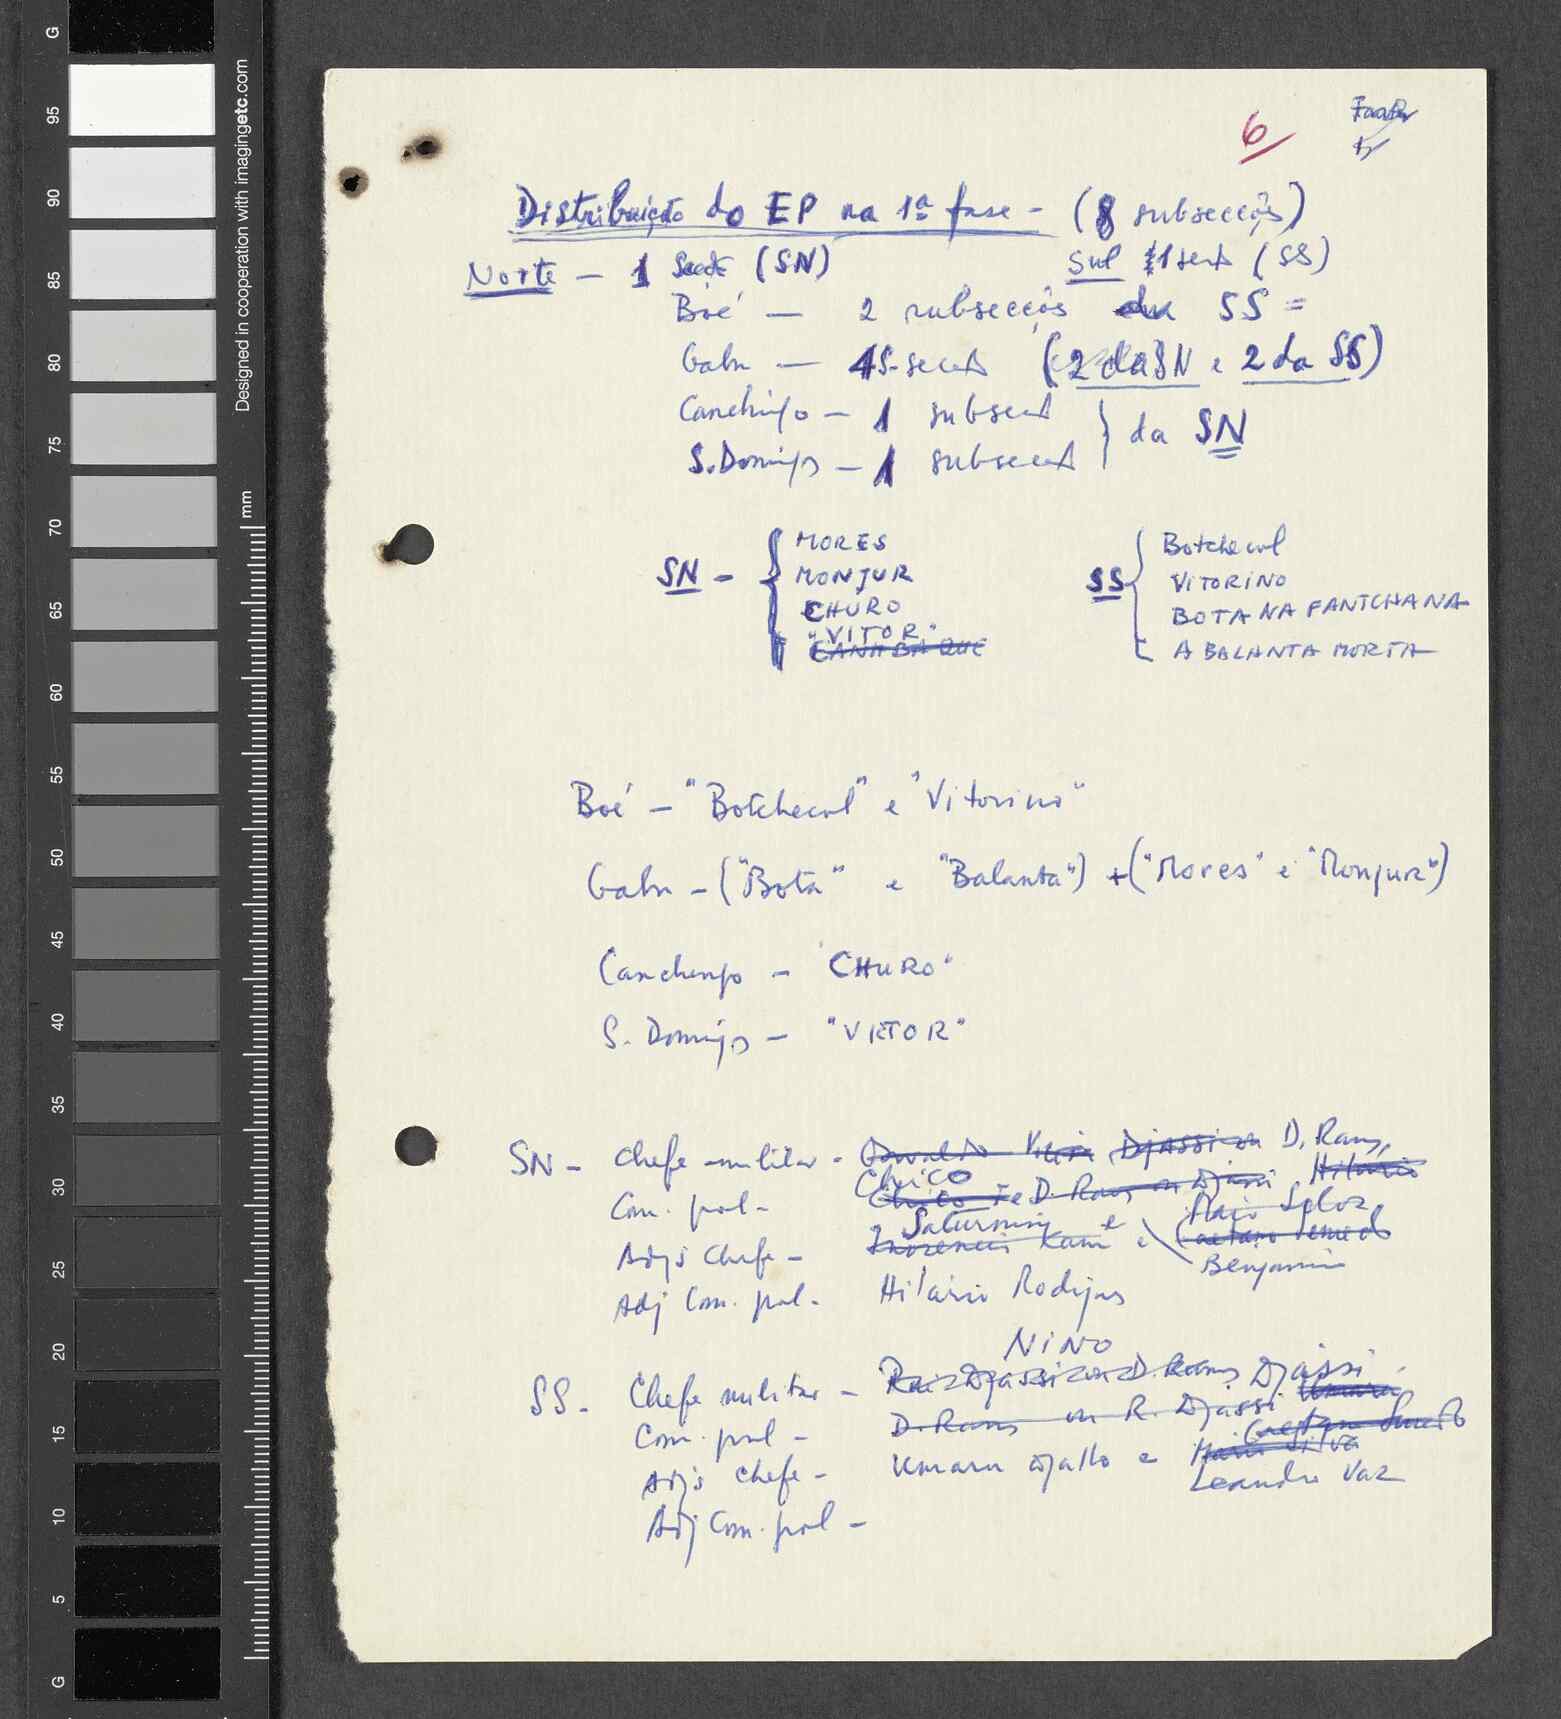 Designed in cooperation with imagingetc.com
mm
G
95
90
85
80
75
70
65
60
55
50
45
40
35
30
25
20
15
10
5
G
6
Distribuição do EP na 1ª fase - (8 subsecções)
Norte - 1 (SN) Sul 1 (SS)
Boé - 2 subsecções da SS =
Gabu - 4 S. (2 da SN e 2 da SS)
Canchungo - 1 } da SN
S. Domingos - 1
SN - { MORES
MONJUR
CHURO
"VITOR"
CANHABAQUE
SS { Botchecul
VITORINO
BOTA NA FANTCHANA
A BALANTA MORTA
Boé - "Botchecul" e "Vitorino"
Gabu - ("Bota" e "Balanta") + ("Mores" e "Monjur")
Canchungo - "CHURO"
S. Domingos - "VITOR"
SN - Chefe militar - Osvaldo Vieira Djassi ou D. Ramos, Hilário
Com. pol - Chico Chico Te D. Ramos ou Djassi
Adjs Chefe - Saturnino e Mário Silva
Benjamim
Adj Com. pol - Hilário Rodrigues
NINO
SS - Chefe militar - Rui Djassi ou D. Ramos Djassi
Com. pol - D. Ramos ou R. Djassi Umaru
Adjs Chefe - Umaru Djallo e Mário Silva Caetano Semedo
Leandro Vaz
Adj Com. pol -